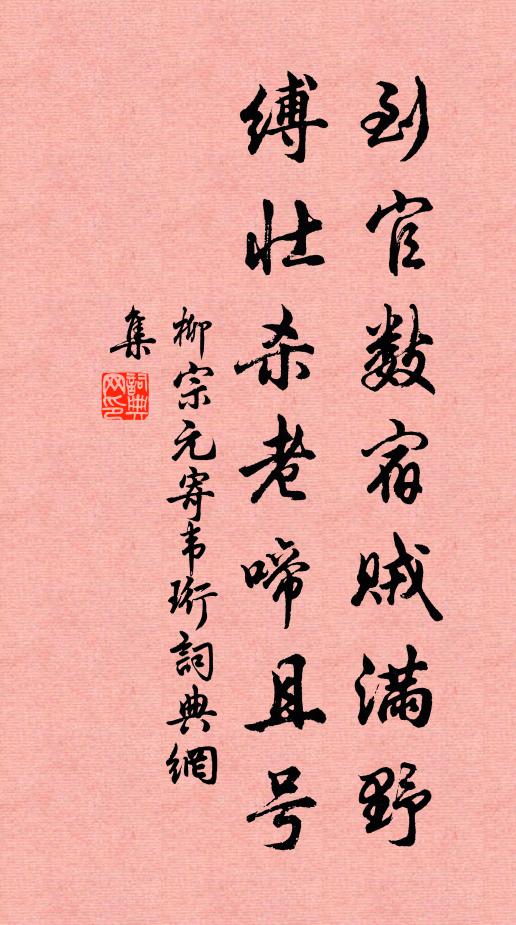 到官数宿贼满野
缚壮杀老啼且号
柳宗元寄韦珩詞典網
集
詞典
网印